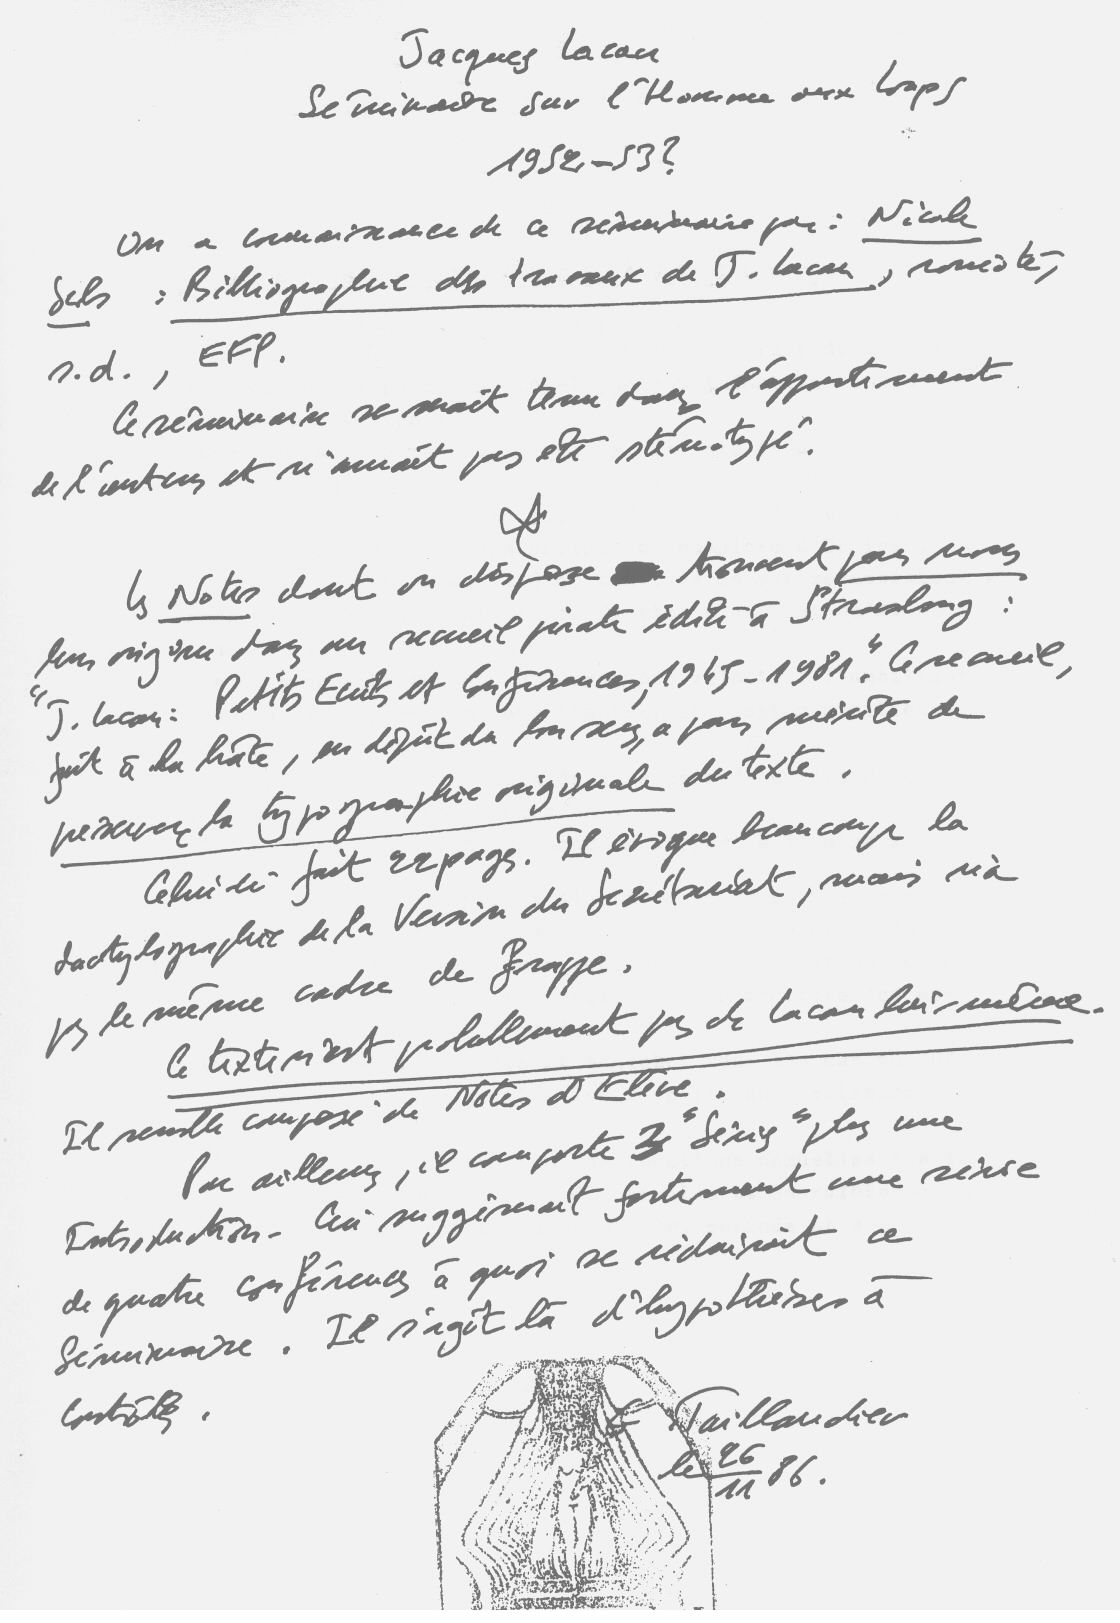 Jacques Lacan
Séminaire sur l'Homme aux Loups
1952-53?
On a connaissance de ce séminaire par : Nicole
Sels : Bibliographie des travaux de J. Lacan, ronéoté,
s.d., EFP.
Ce séminaire se serait tenu dans l'appartement
de l'auteur et n'aurait pas été sténotypé.
Les Notes dont on dispose trouvent pour nous
leur origine dans un recueil pirate édité à Strasbourg :
"J. Lacan : Petits Ecrits et Conférences, 1945-1981". Ce recueil,
fait à la hâte, en dépit du bon sens, a pour mérite de
préserver la typographie originale du texte.
Celui-ci fait 22 pages. Il évoque beaucoup la
dactylographie de la Version du Secrétariat, mais n'a
pas le même cadre de frappe.
Ce texte n'est probablement pas de Lacan lui-même.
Il semble composé de Notes d'Elève.
Par ailleurs, il comporte 3 "Séries" plus une
Introduction. Ceci suggérerait fortement une série
de quatre conférences à quoi se réduirait ce
Séminaire. Il s'agit là d'hypothèses à
contrôler.
G Taillandier
le 26/11 86.